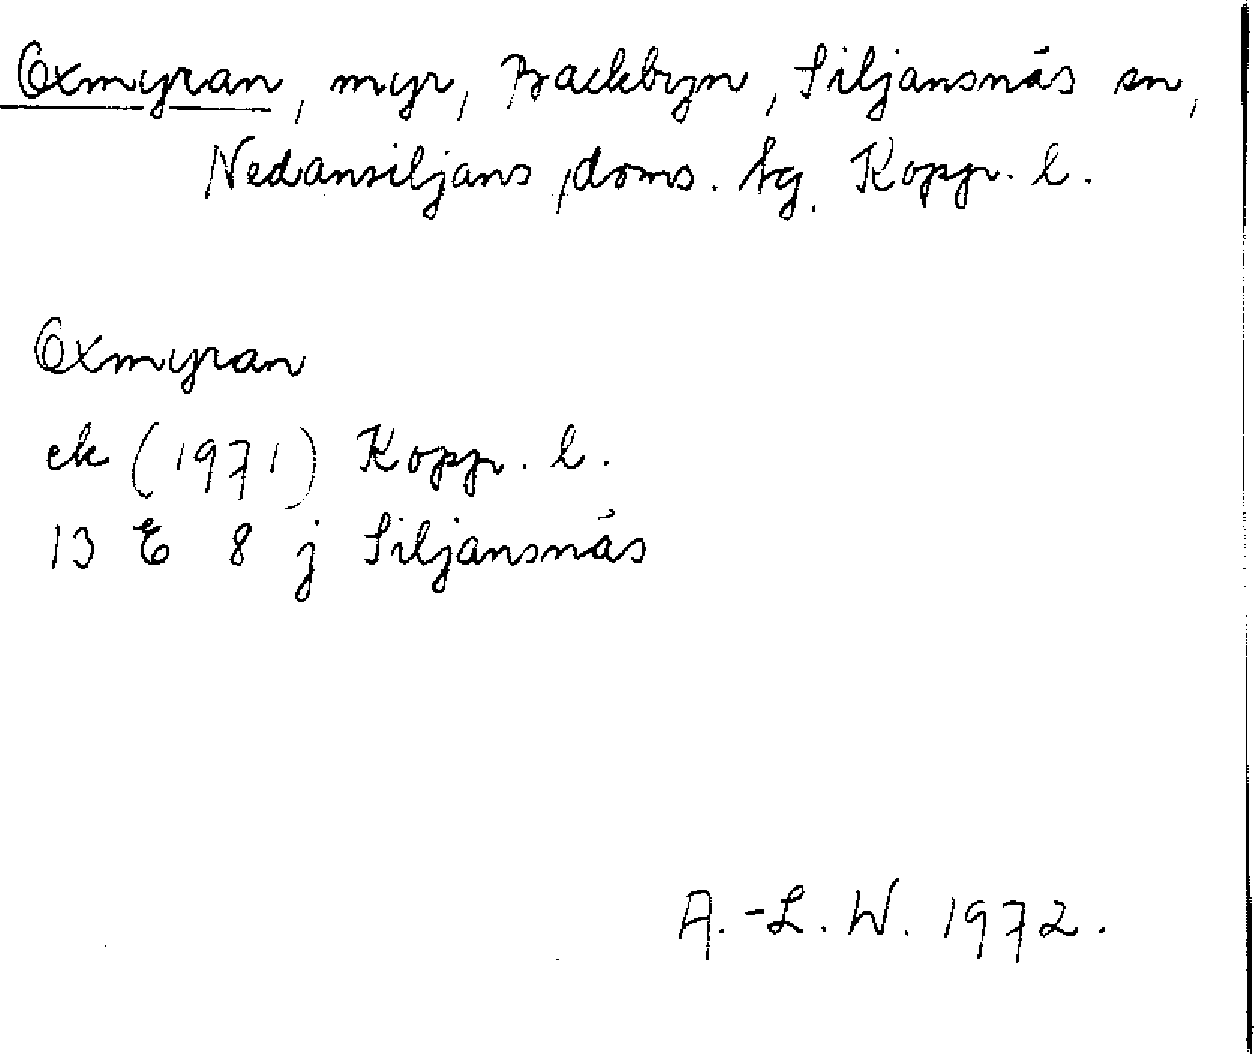 Oxmyran, myr, Backbyn, Siljansnäs sn,
Nedansiljans doms. tg. Kopp. l.
Oxmyran
ek (1971) Kopp. l.
13 E 8 j Siljansnäs
A.-L. W. 1972.